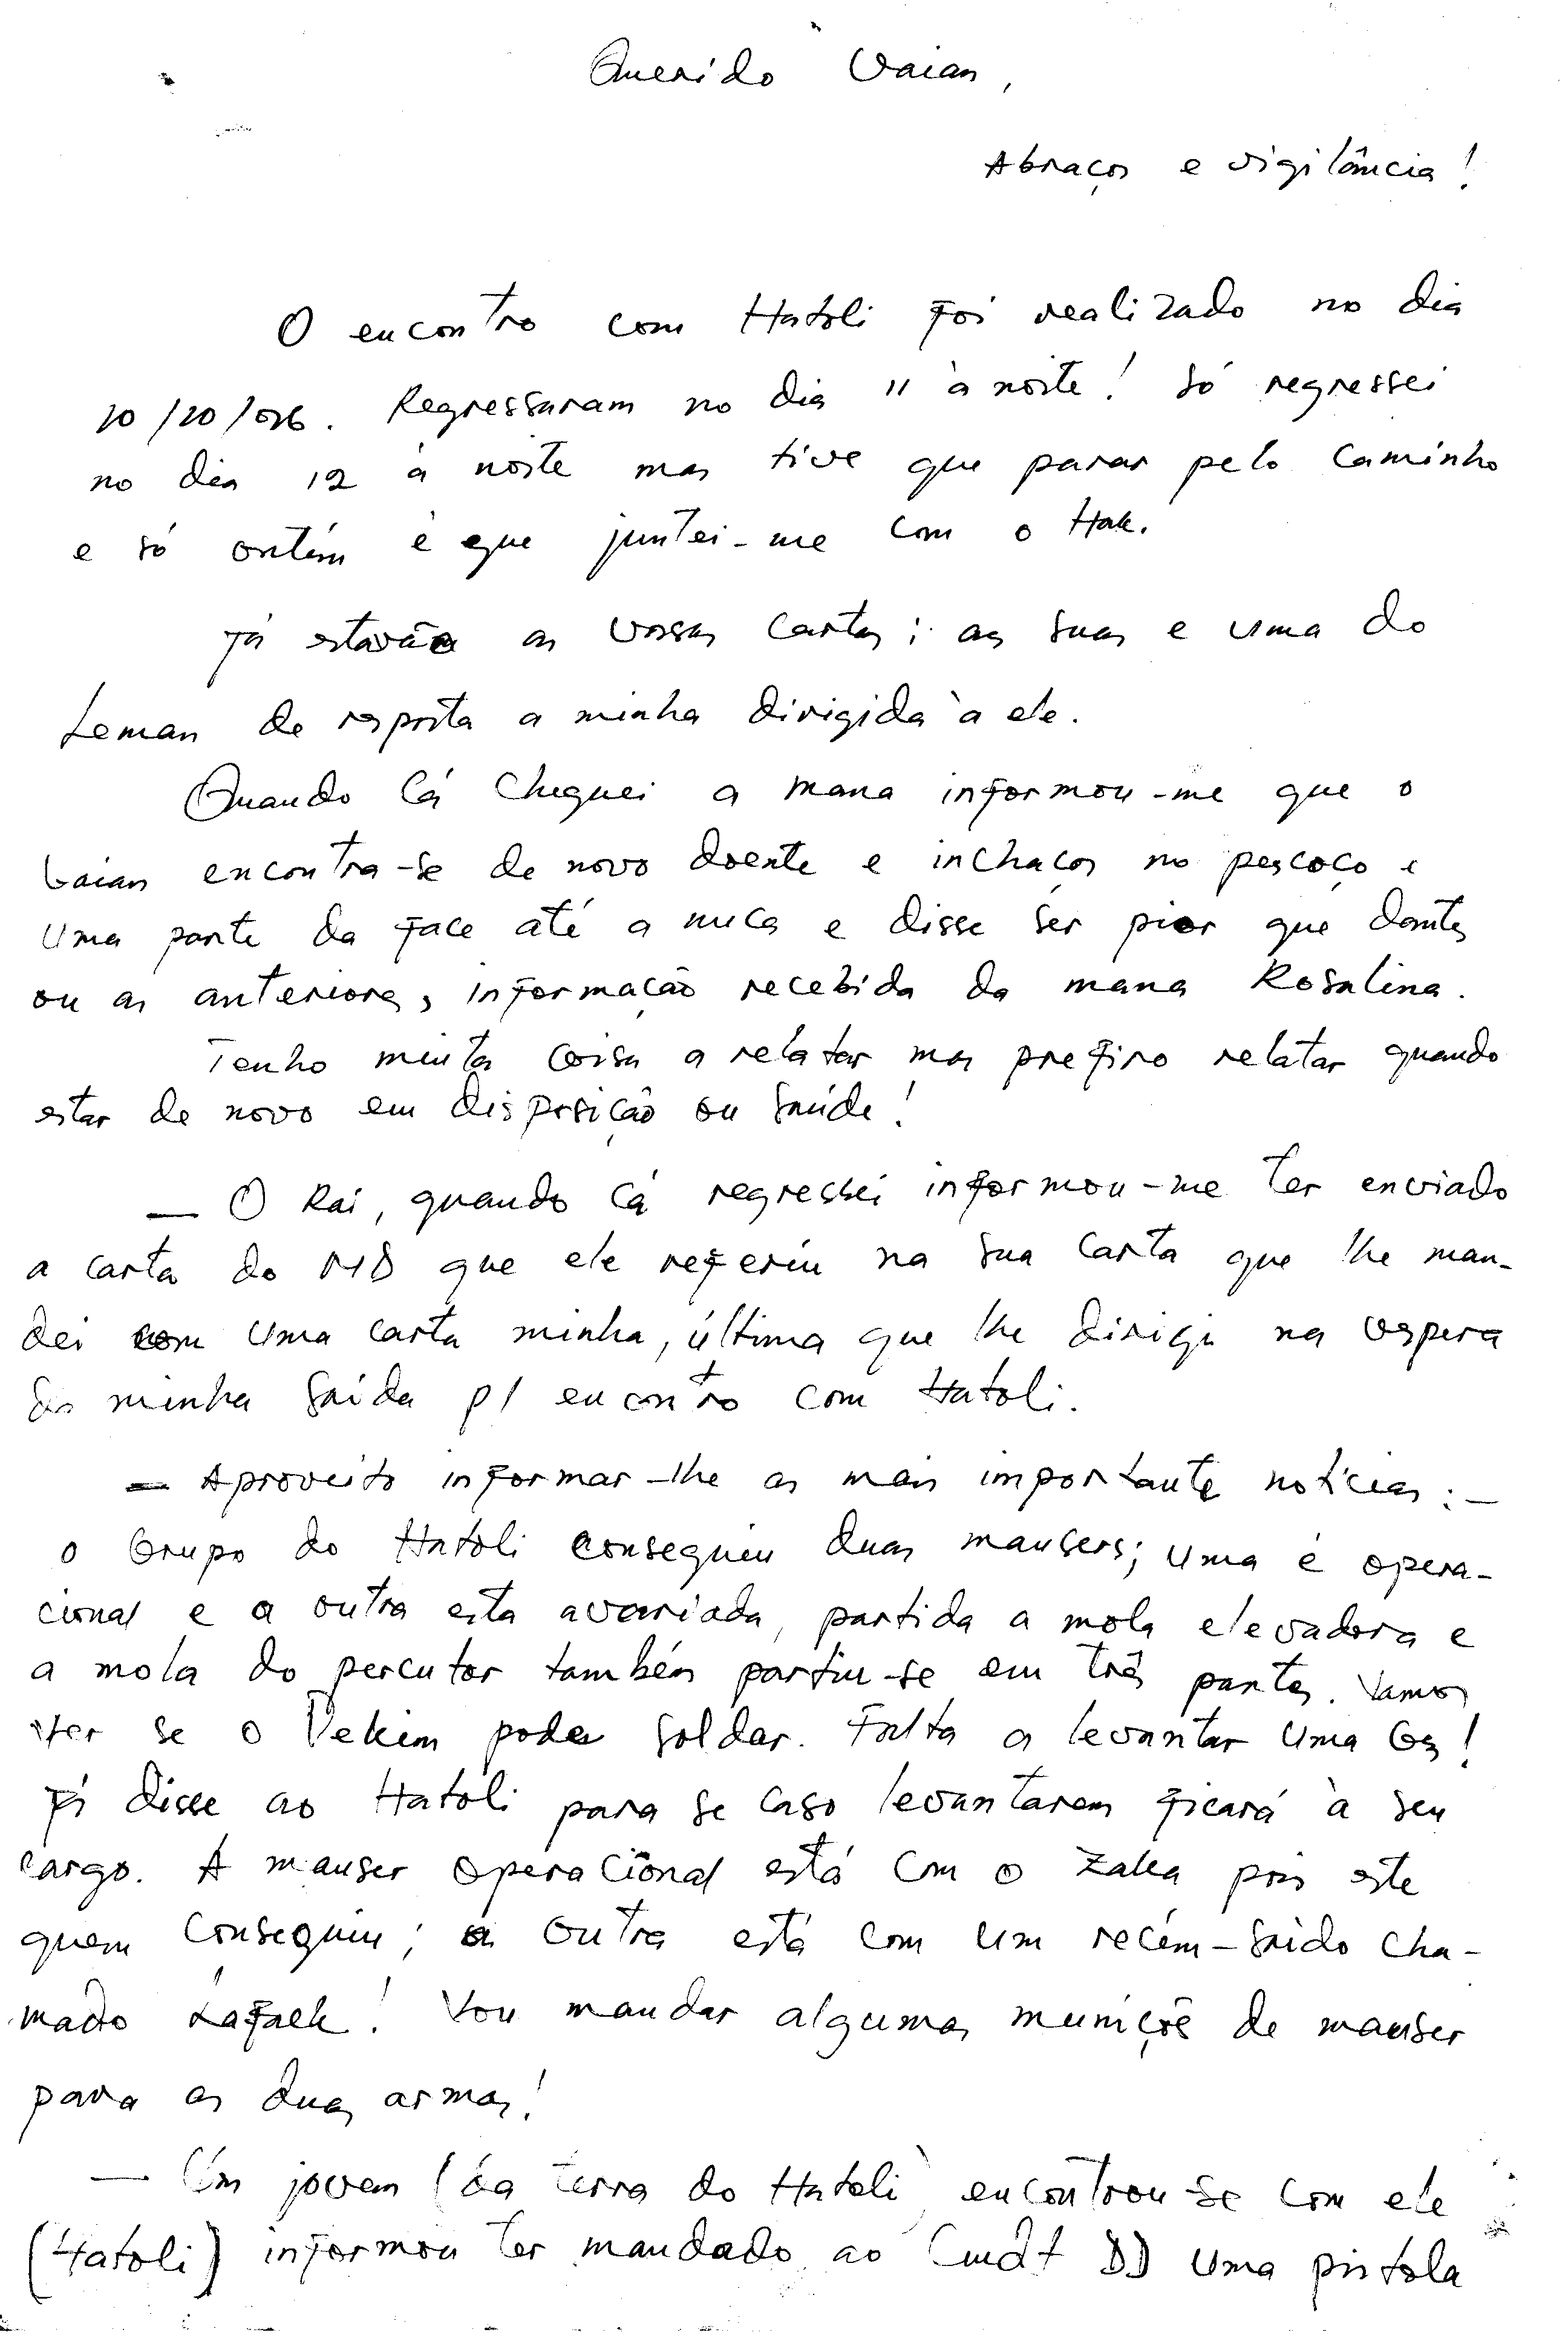 Querido Vaian,
Abraços e vigilância!
O encontro com Hatoli foi realizado no dia
10/10/096. Regressaram no dia 11 à noite! Só regressei
no dia 12 à noite mas tive que parar pelo caminho
e só ontém é que juntei-me com o Hak.
Já estavão as vossas cartas; as suas e uma do
Leman de resposta a minha dirigida à ele.
Quando cá cheguei a mana informou-me que o
Vaian encontra-se de novo doente e inchaços no pescoço e
uma parte da face até a nuca e disse ser pior que dantes
ou as anteriores, informação recebida da mana Rosalina.
Tenho muita coisa a relatar mas prefiro relatar quando
estar de novo em disposição ou saúde!
— O Rai, quando cá regressei informou-me ter enviado
a carta do MD que ele referiu na sua carta que lhe man-
dei com uma carta minha, última que lhe dirigi na vespera
da minha saída p/ encontro com Hatoli.
— Aproveito informar-lhe as mais importante notícias:—
o Grupo do Hatoli conseguiu duas mausers; uma é opera-
cional e a outra esta avariada, partida a mola elevadora e
a mola do percutor também partiu-se em três partes. Vamos
ver se o Dekim poder soldar. Falta a levantar uma G3!
Já disse ao Hatoli para se caso levantarem ficará à seu
cargo. A mauser operacional está com o Zaka pois este
quem conseguiu; a outra está com um recém-saido cha-
mado Lafaek! Vou mandar algumas munições de mauser
para as duas armas!
— Um jovem (da terra do Hatoli) encontrou-se com ele
(Hatoli) informou ter mandado ao Cmdt DD uma pistola